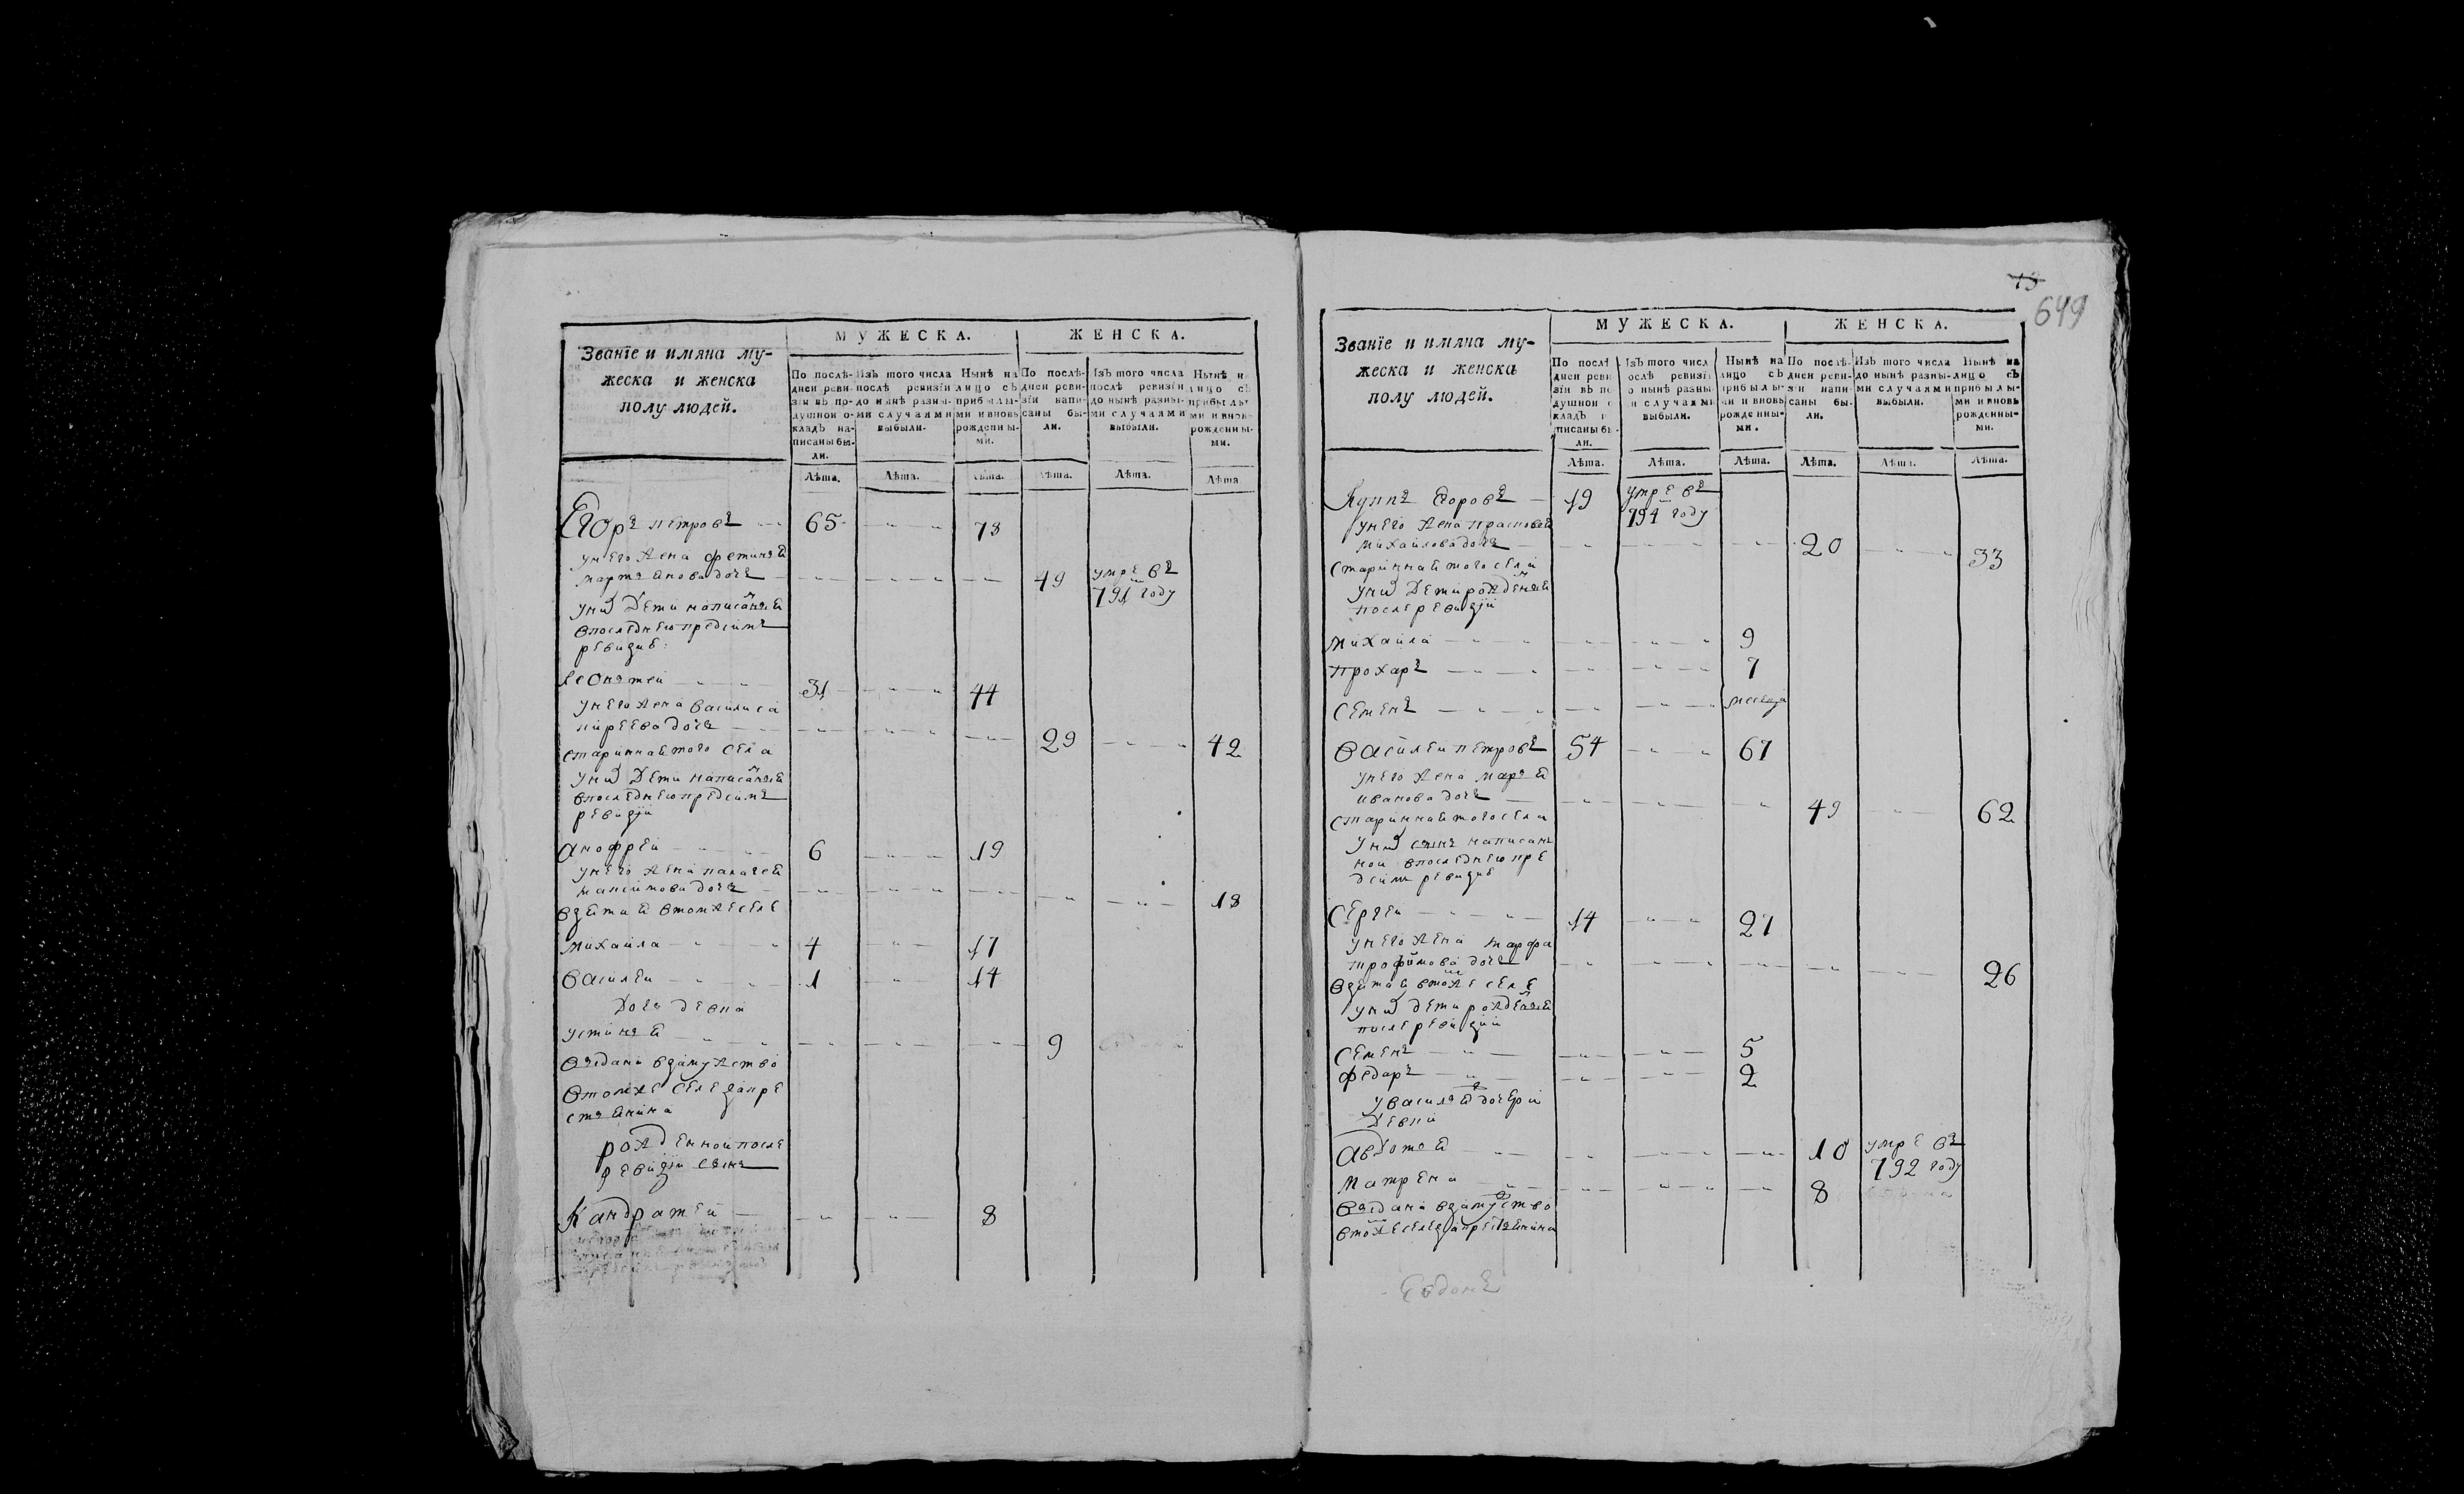 Званїе и имяна му-
жеска и женска
полу людей.
МУЖЕСКА.
ЖЕНСКА.
По послѣ-
дней реви-
зїи въ по-
душной о-
кладъ на-
писаны бы-
ли.
Изъ того числа
послѣ ревизїи
до нынѣ разны-
ми случаями
выбыли.
Нынѣ на
лицо съ
прибылы-
ми и вновь
рожденны-
ми.
По послѣ-
дней реви-
зїи напи-
саны бы-
ли.
Изъ того числа
послѣ ревизїи
до нынѣ разны-
ми случаями
выбыли.
Нынѣ на
лицо съ
прибылы-
ми и вновь
рожденны-
ми.
Лѣта. Лѣта. Лѣта. Лѣта. Лѣта. Лѣта
Егоръ петровъ 65 78
унего жена фетинья
мартьянова дочь 49 умре въ
791 году
уних дети написаныя
впоследнею предсимъ
ревизию:
леонтей 31 44
унего жена василиса
киреева дочь 29 42
стариннаятого села
уних дети написаныя
впоследнею предсимъ
ревизїи
анофрей 6 19
унего жена палагея
максимова дочь 18
взятая втомже селе
михайла 4 17
василей 1 14
дочь девка
устинья 9
выдана взамужство
втомже селе закре
стьянина
рожденной после
ревизїи сынъ
Кандратей 8
13
649
Званїе и имяна му-
жеска и женска
полу людей.
МУЖЕСКА.
ЖЕНСКА.
По послѣ
дней реви
зїи въ по
душной о
кладъ н
писаны бы-
ли.
Изъ того числ
ослѣ ревизїи
о нынѣ разны-
и случаями
выбыли.
Нынѣ на
лицо съ
прибылы-
ми и вновь
рожденны-
ми.
По послѣ-
дней реви-
зїи напи-
саны бы-
ли.
Изъ того числа
до нынѣ разны-
ми случаями
выбыли.
Нынѣ на
лицо съ
прибылы-
ми и вновь
рожденны-
ми.
Лѣта. Лѣта. Лѣта. Лѣта. Лѣта. Лѣта.
Егоровъ 19 умре въ
794 году
унего жена прасковья
михайлова дочь 20 33
стариннаятого села
уних дети рожденыя
после ревизїи
михайла 9
прохаръ 7
семенъ месеца
василей петровъ 54 67
унего жена марья
иванова дочь 49 62
стариннаятого села
уних сынъ написанъ
ной впоследнею пре
дсимъ ревизию
сергей 14 27
унего жена марфа
трофимова дочь 26
взятая втомже селе
уних дети рожденыя
после ревизїи
семенъ 5
федаръ 2
у василья дочери
девки
авдотья 10 умре въ
792 году
матрена 8
выдана взамуство
втомжеселе закрестьянина